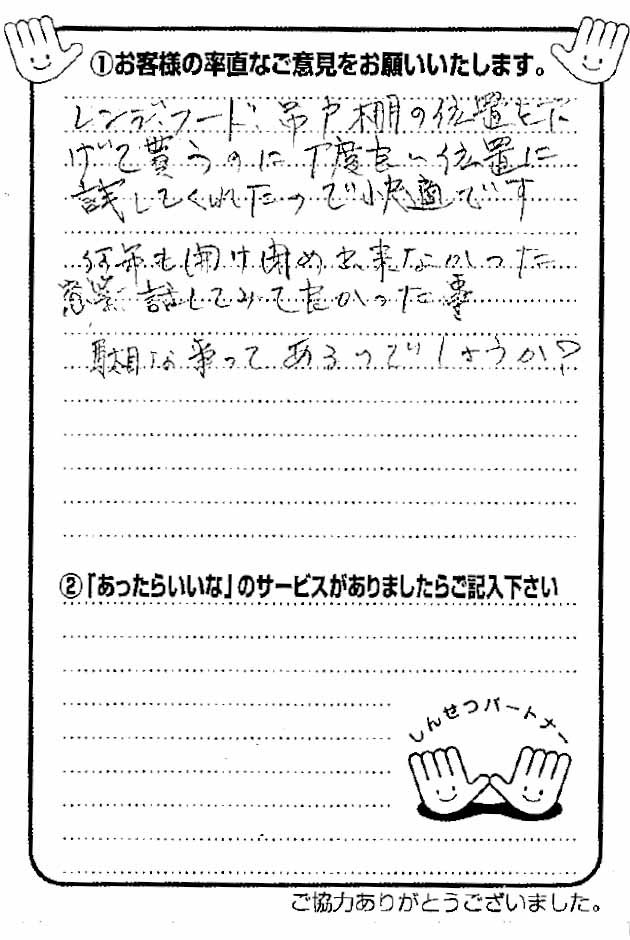 ①お客様の率直なご意見をお願いいたします。
レンジフード、吊戸棚の位置を下
げて貰うのに丁度良い位置に
試してくれたので快適です
何年も開け閉め出来なかった
窓 話してみて良かった
駄目な事ってあるのでしょうか?
②「あったらいいな」のサービスがありましたらご記入下さい
しんせつパートナー
ご協力ありがとうございました。